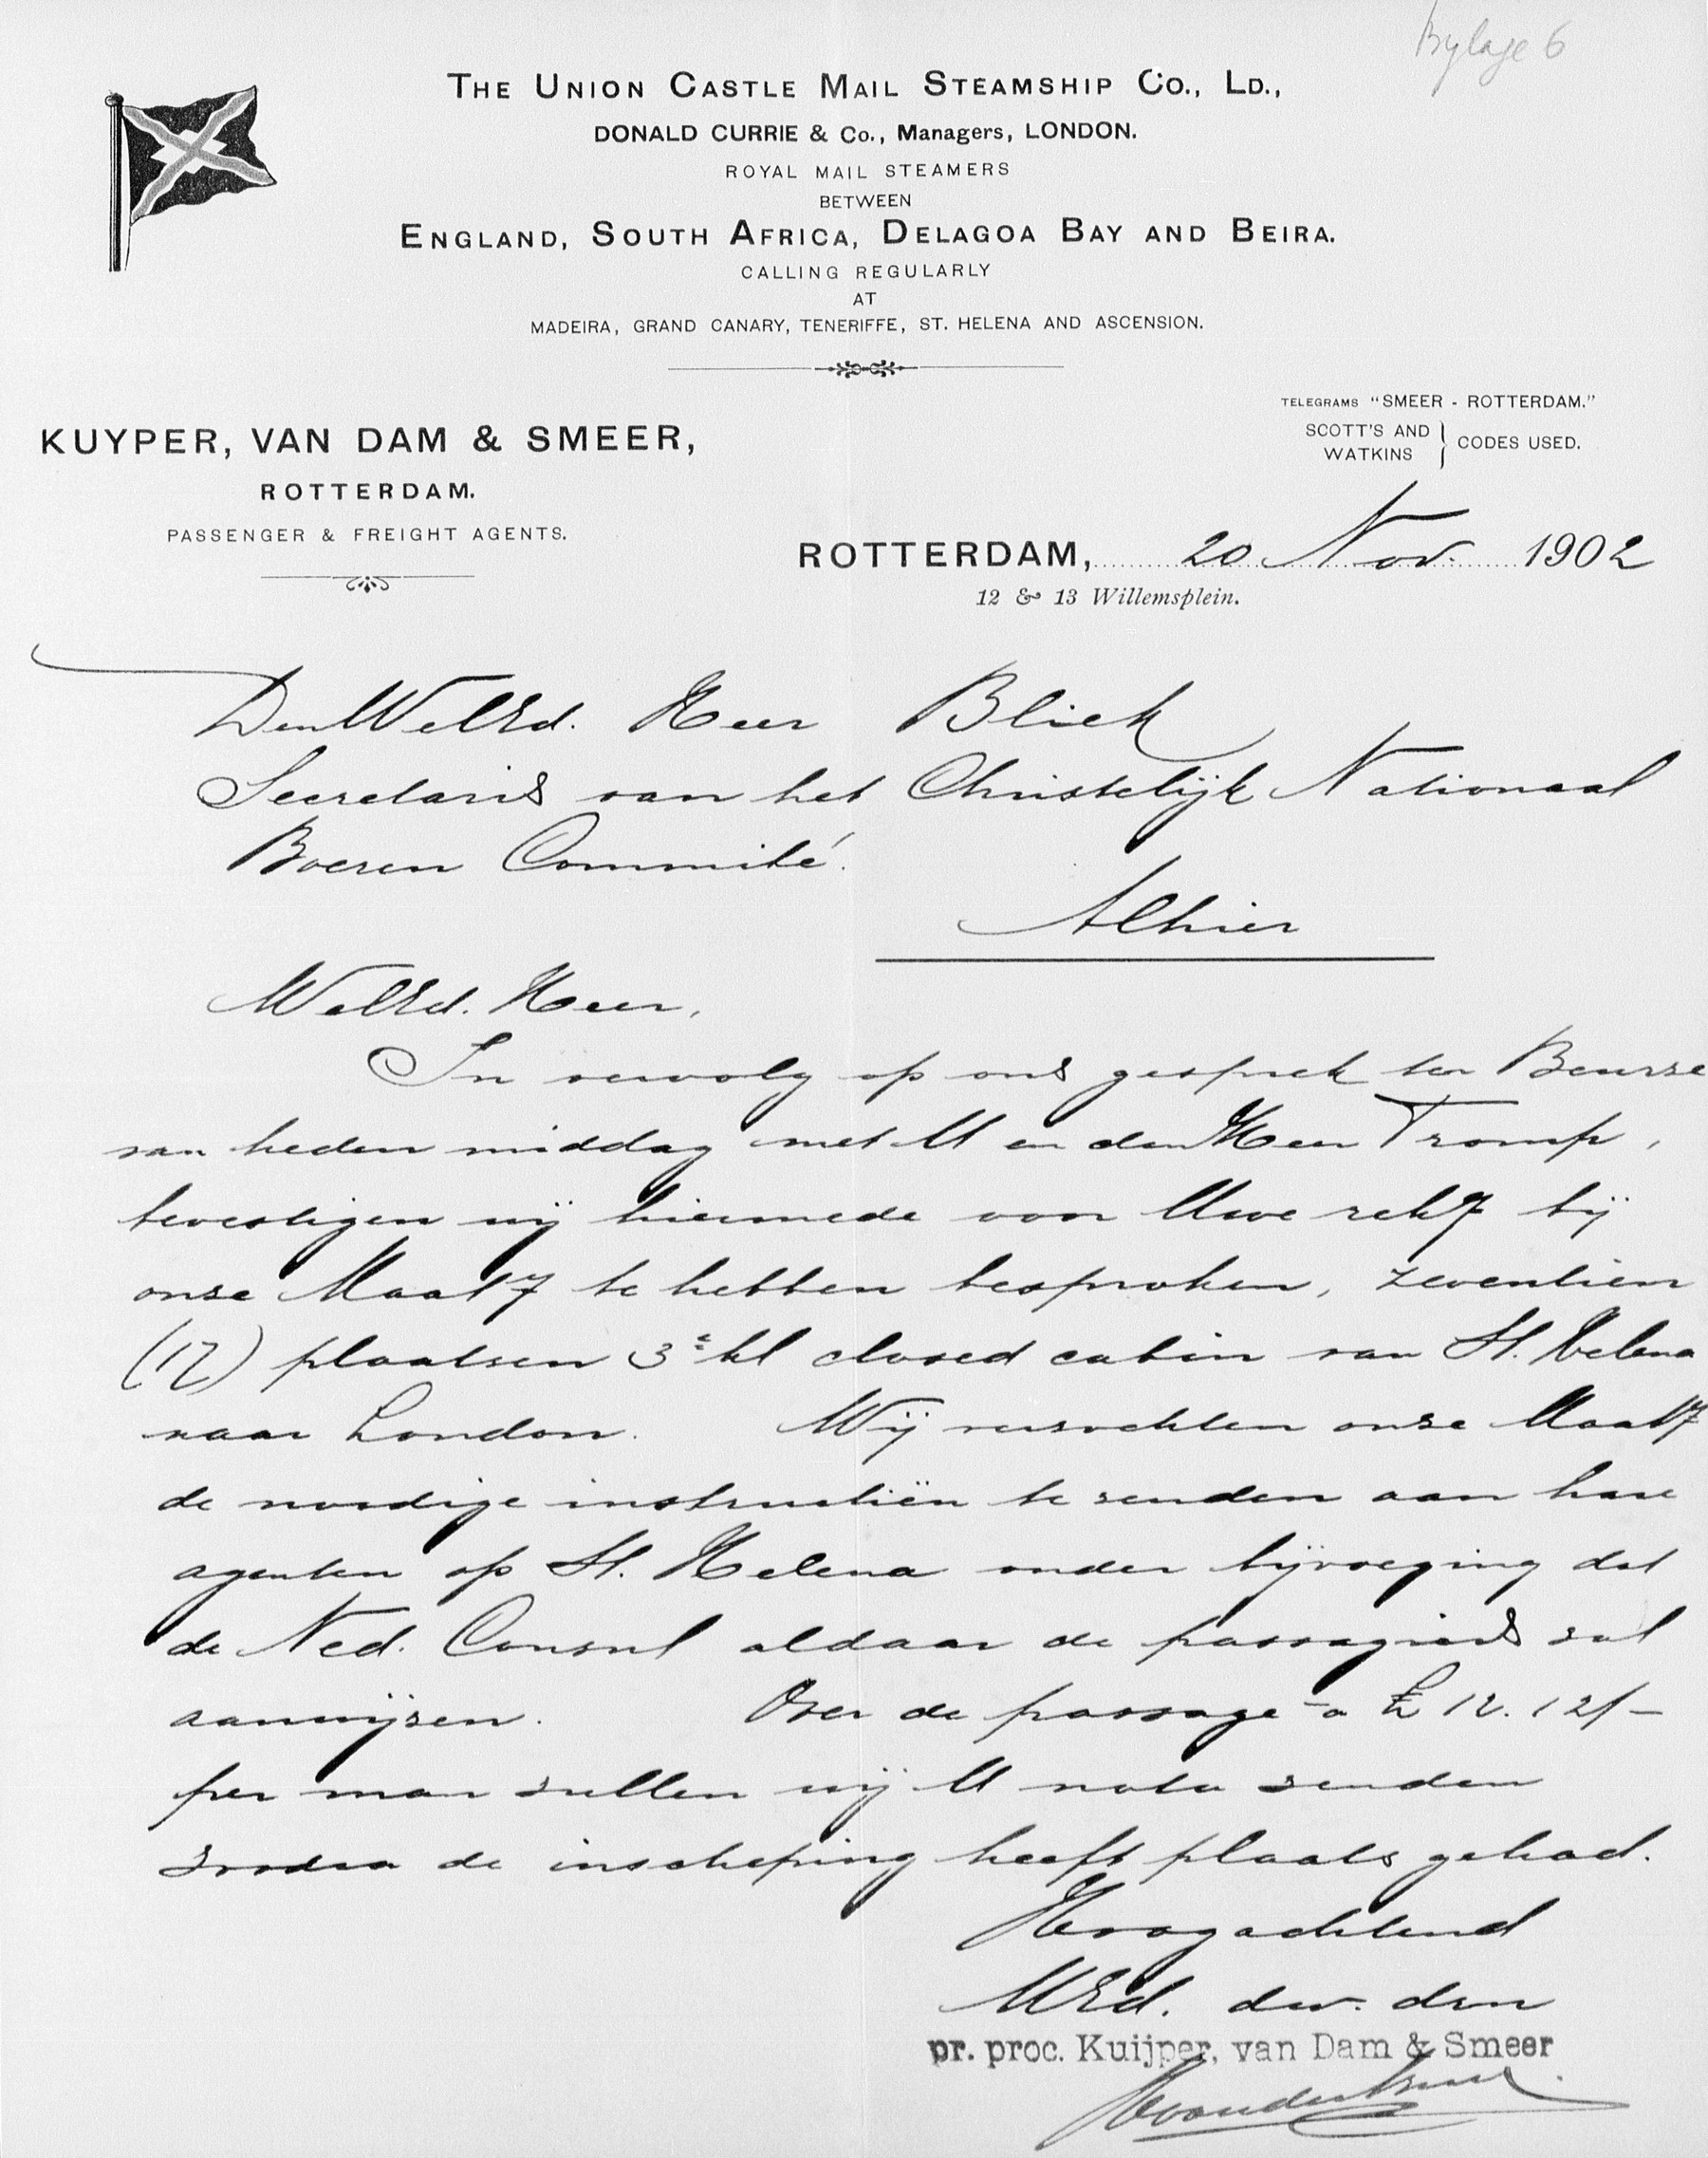 Bylage 6
THE UNION CASTLE MAIL STEAMSHIP CO., LD.,
DONALD CURRIE & Co., Managers, LONDON.
ROYAL MAIL STEAMERS
BETWEEN
ENGLAND, SOUTH AFRICA, DELAGOA BAY AND BEIRA.
CALLING REGULARLY
AT
MADEIRA, GRAND CANARY, TENERIFFE, ST. HELENA AND ASCENSION.
KUYPER, VAN DAM & SMEER,
ROTTERDAM.
PASSENGER & FREIGHT AGENTS.
TELEGRAMS "SMEER - ROTTERDAM."
SCOTT'S AND
WATKINS } CODES USED.
ROTTERDAM, 20 Nov. 1902
12 & 13 Willemsplein.
Den WelEd. Heer Bliek
Secretaris van het Christelijk Nationaal
Boeren Commité.
Alhier
WelEd. Heer,
In vervolg op ons gesprek ter Beurse
van heden middag met U en den Heer Tromp,
bevestigen wij hiermede voor Uwe rek bij
onze Maats te hebben besproken, zeventien
(17) plaatsen 3e kl closed cabin van St. Helena
naar London. Wij verzochten onze Maats
de noodige instructiën te zenden aan hare
agenten op St. Helena onder bijvoeging dat
de Ned. Consul aldaar de passagiers zal
aanwijzen. Over de passage à £ 12.12/-
per man zullen wij U nota zenden
zoodra de inscheping heeft plaats gehad.
Hoogachtend
UEd. dw. dnn
pr. proc. Kuijper, van Dam & Smeer